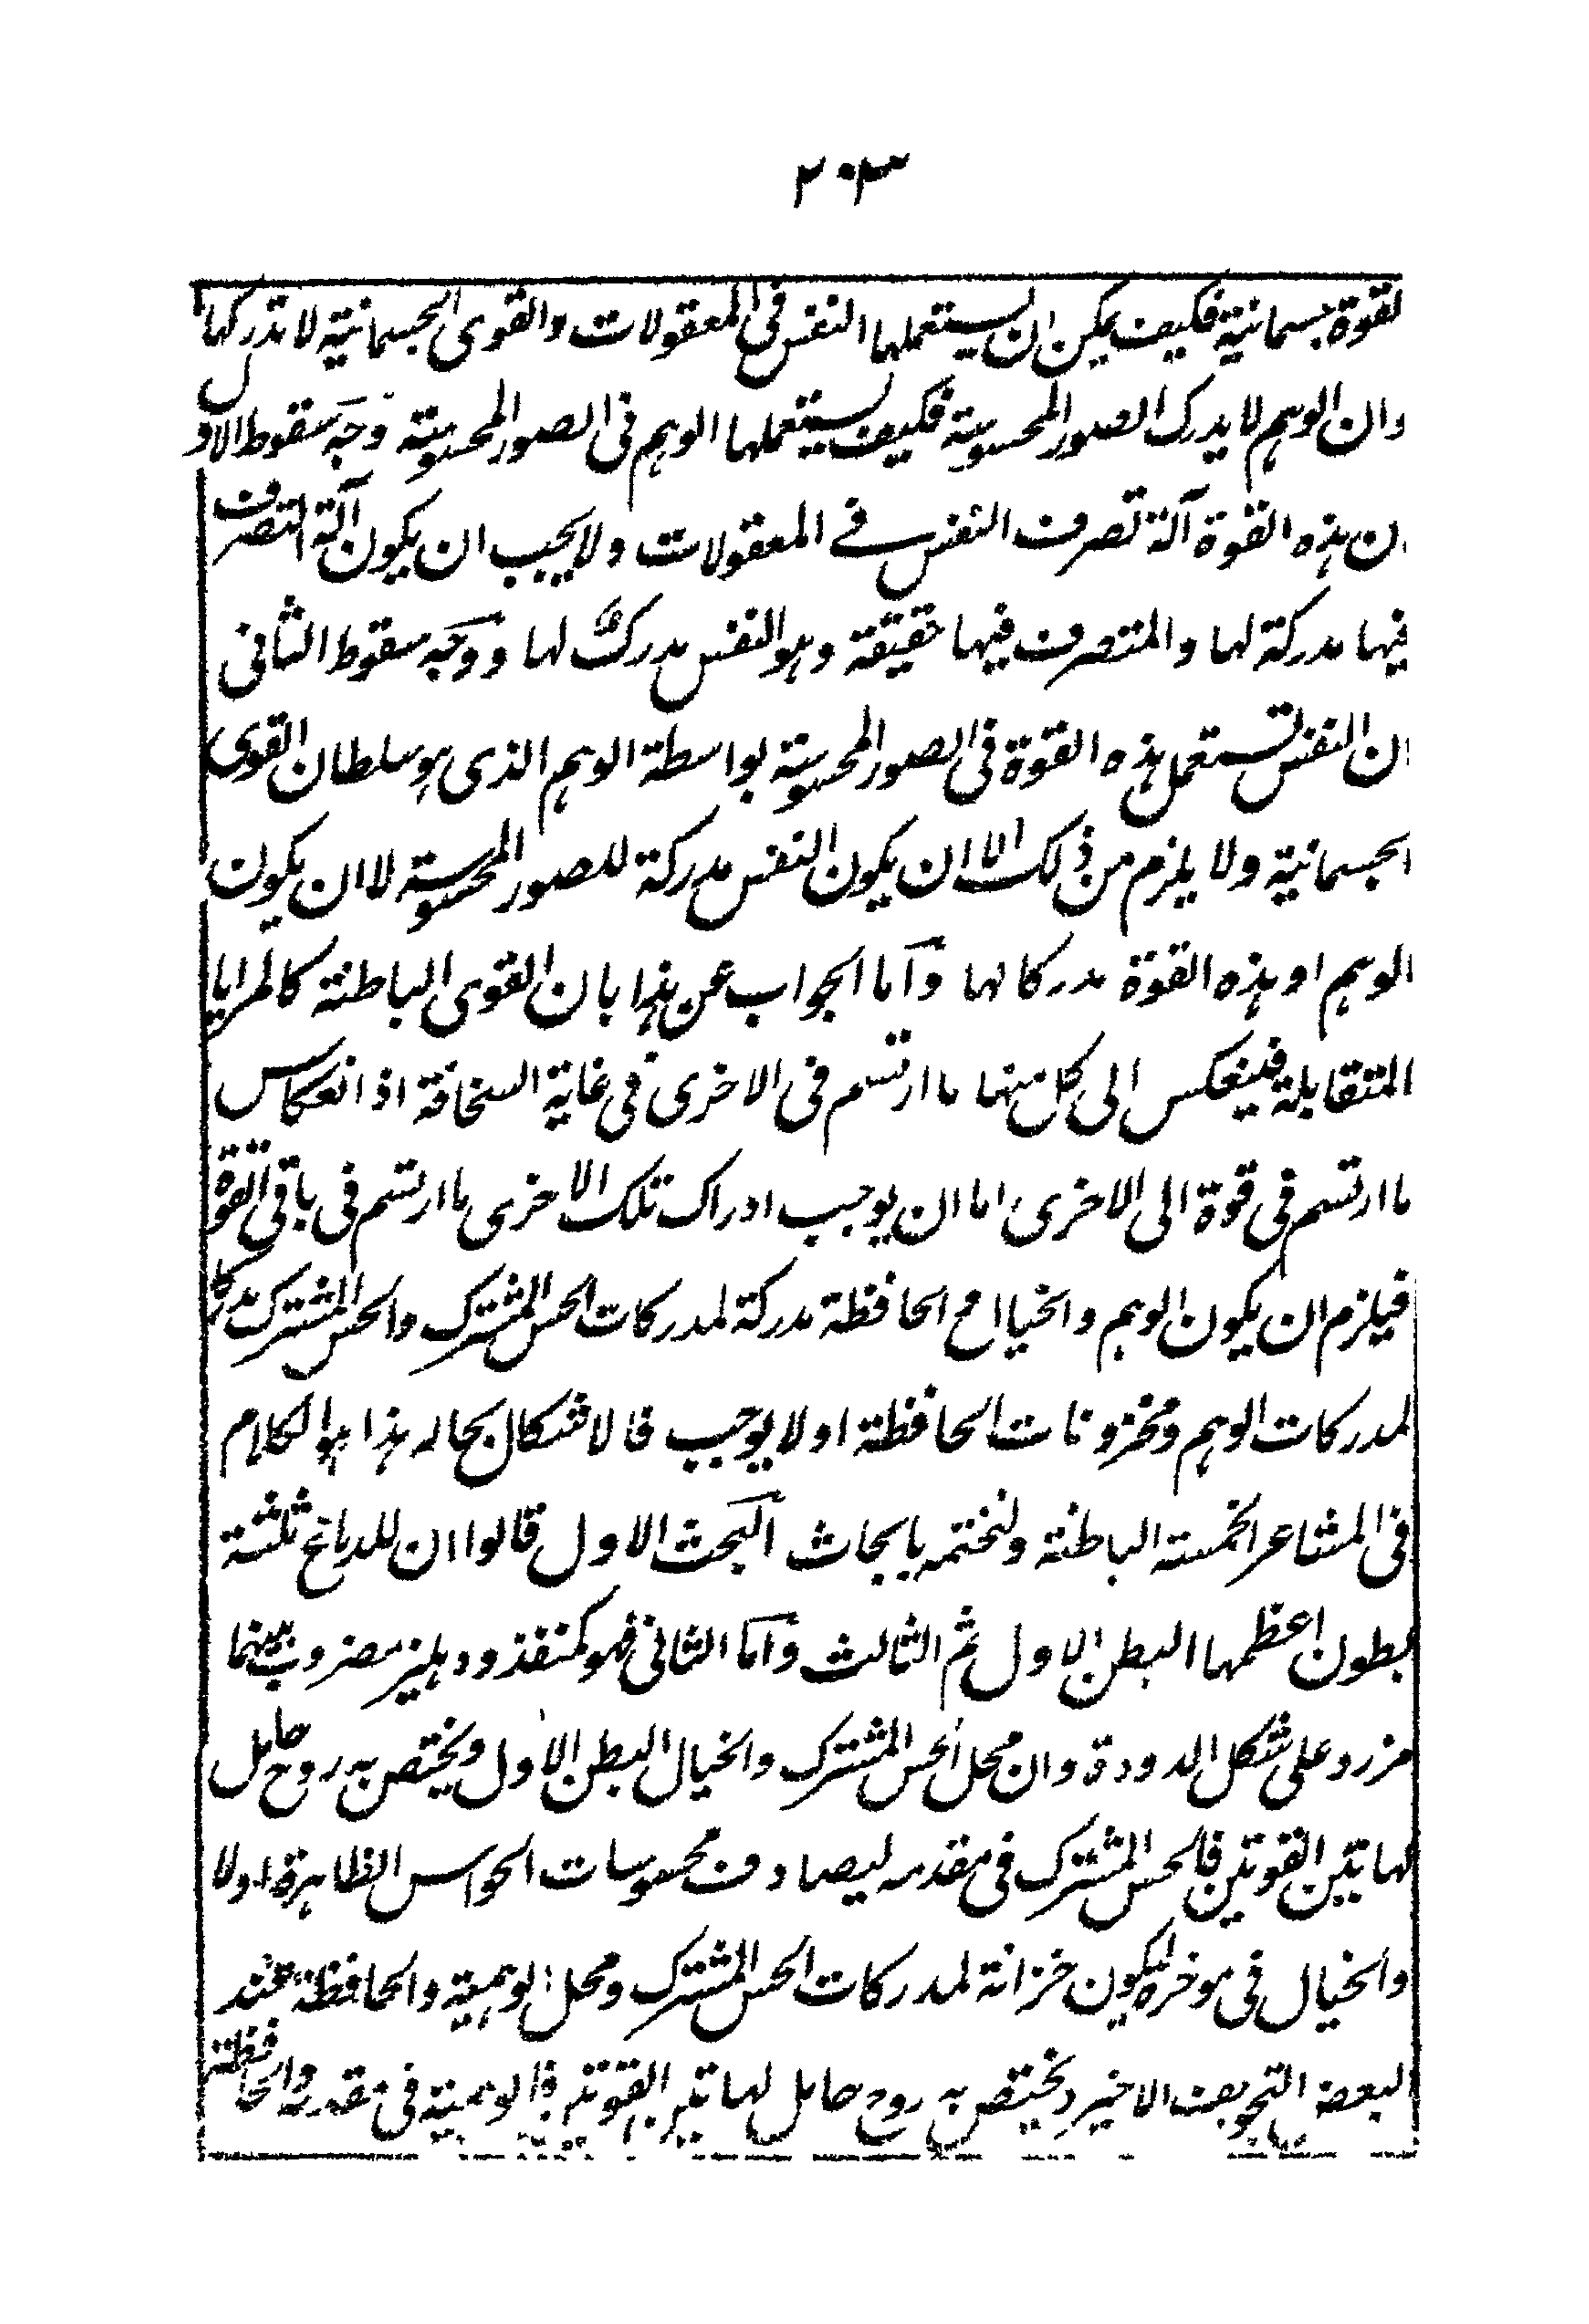 ٢٠٣
لقوة جسمانية فكيف يمكن ان يستعملها النفس فى المعقولات والقوى الجسمانية لا تدركها
وان الوهم لا يدرك الصور المحسوسة فكيف يستعملها الوهم فى الصور المحسوسة وجه سقوط الاول
ان هذه القوة آلة تصرف النفس فے المعقولات ولا يجب ان يكون آلة التصرف
فيها مدركة لها والمتصرف فيها حقيقة وهو النفس مدرك لها ووجه سقوط الثانى
ان النفس تستعمل هذه القوة فى الصور المحسوسة بواسطة الوهم الذى هو سلطان القوى
الجسمانية ولا يلزم من ذلك الا ان يكون النفس مدركة للصور المحسوسة لا ان يكون
الوهم او هذه القوة مدركا لها وآما الجواب عن هذا بان القوى الباطنة كالمرايا
المتقابلة فينعكس الى كل منها ما ارتسم فى الاخرى فى غاية السخافة اذ انعكاس
ما ارتسم فى قوة الى الاخرى اما ان يوجب ادراك تلك الاخرى ما ارتسم فى باقى القوة
فيلزم ان يكون الوهم والخيال مع الحافظة مدركة لمدركات الحس المشترك والحس المشترك مدركا
لمدركات الوهم ومخزونات الحافظة او لا يوجب فالاشكال بحاله هذا هو الكلام
فى المشاعر الخمسة الباطنة ولنختمه بابحاث آلبحث الاول قالوا ان للدماغ ثلثة
بطون اعظمها البطن الاول ثم الثالث وآما الثانى فهو كمنفذ ودهليز مضروب بينهما
مزرد على شكل الدودة وان محل الحس المشترك والخيال البطن الاول ويختص به روح حامل
لهاتين القوتين فالحس المشترك فى مقدمه ليصادف محسوسات الحواس الظاهرة اولا
والخيال فى موخره ليكون خزانة لمدركات الحس المشترك ومحل الوهمية والحافظة عند
البعض التجويف الاخير ويختص به روح حامل لهاتين القوتين فالوهمية فى مقدمه والحافظة